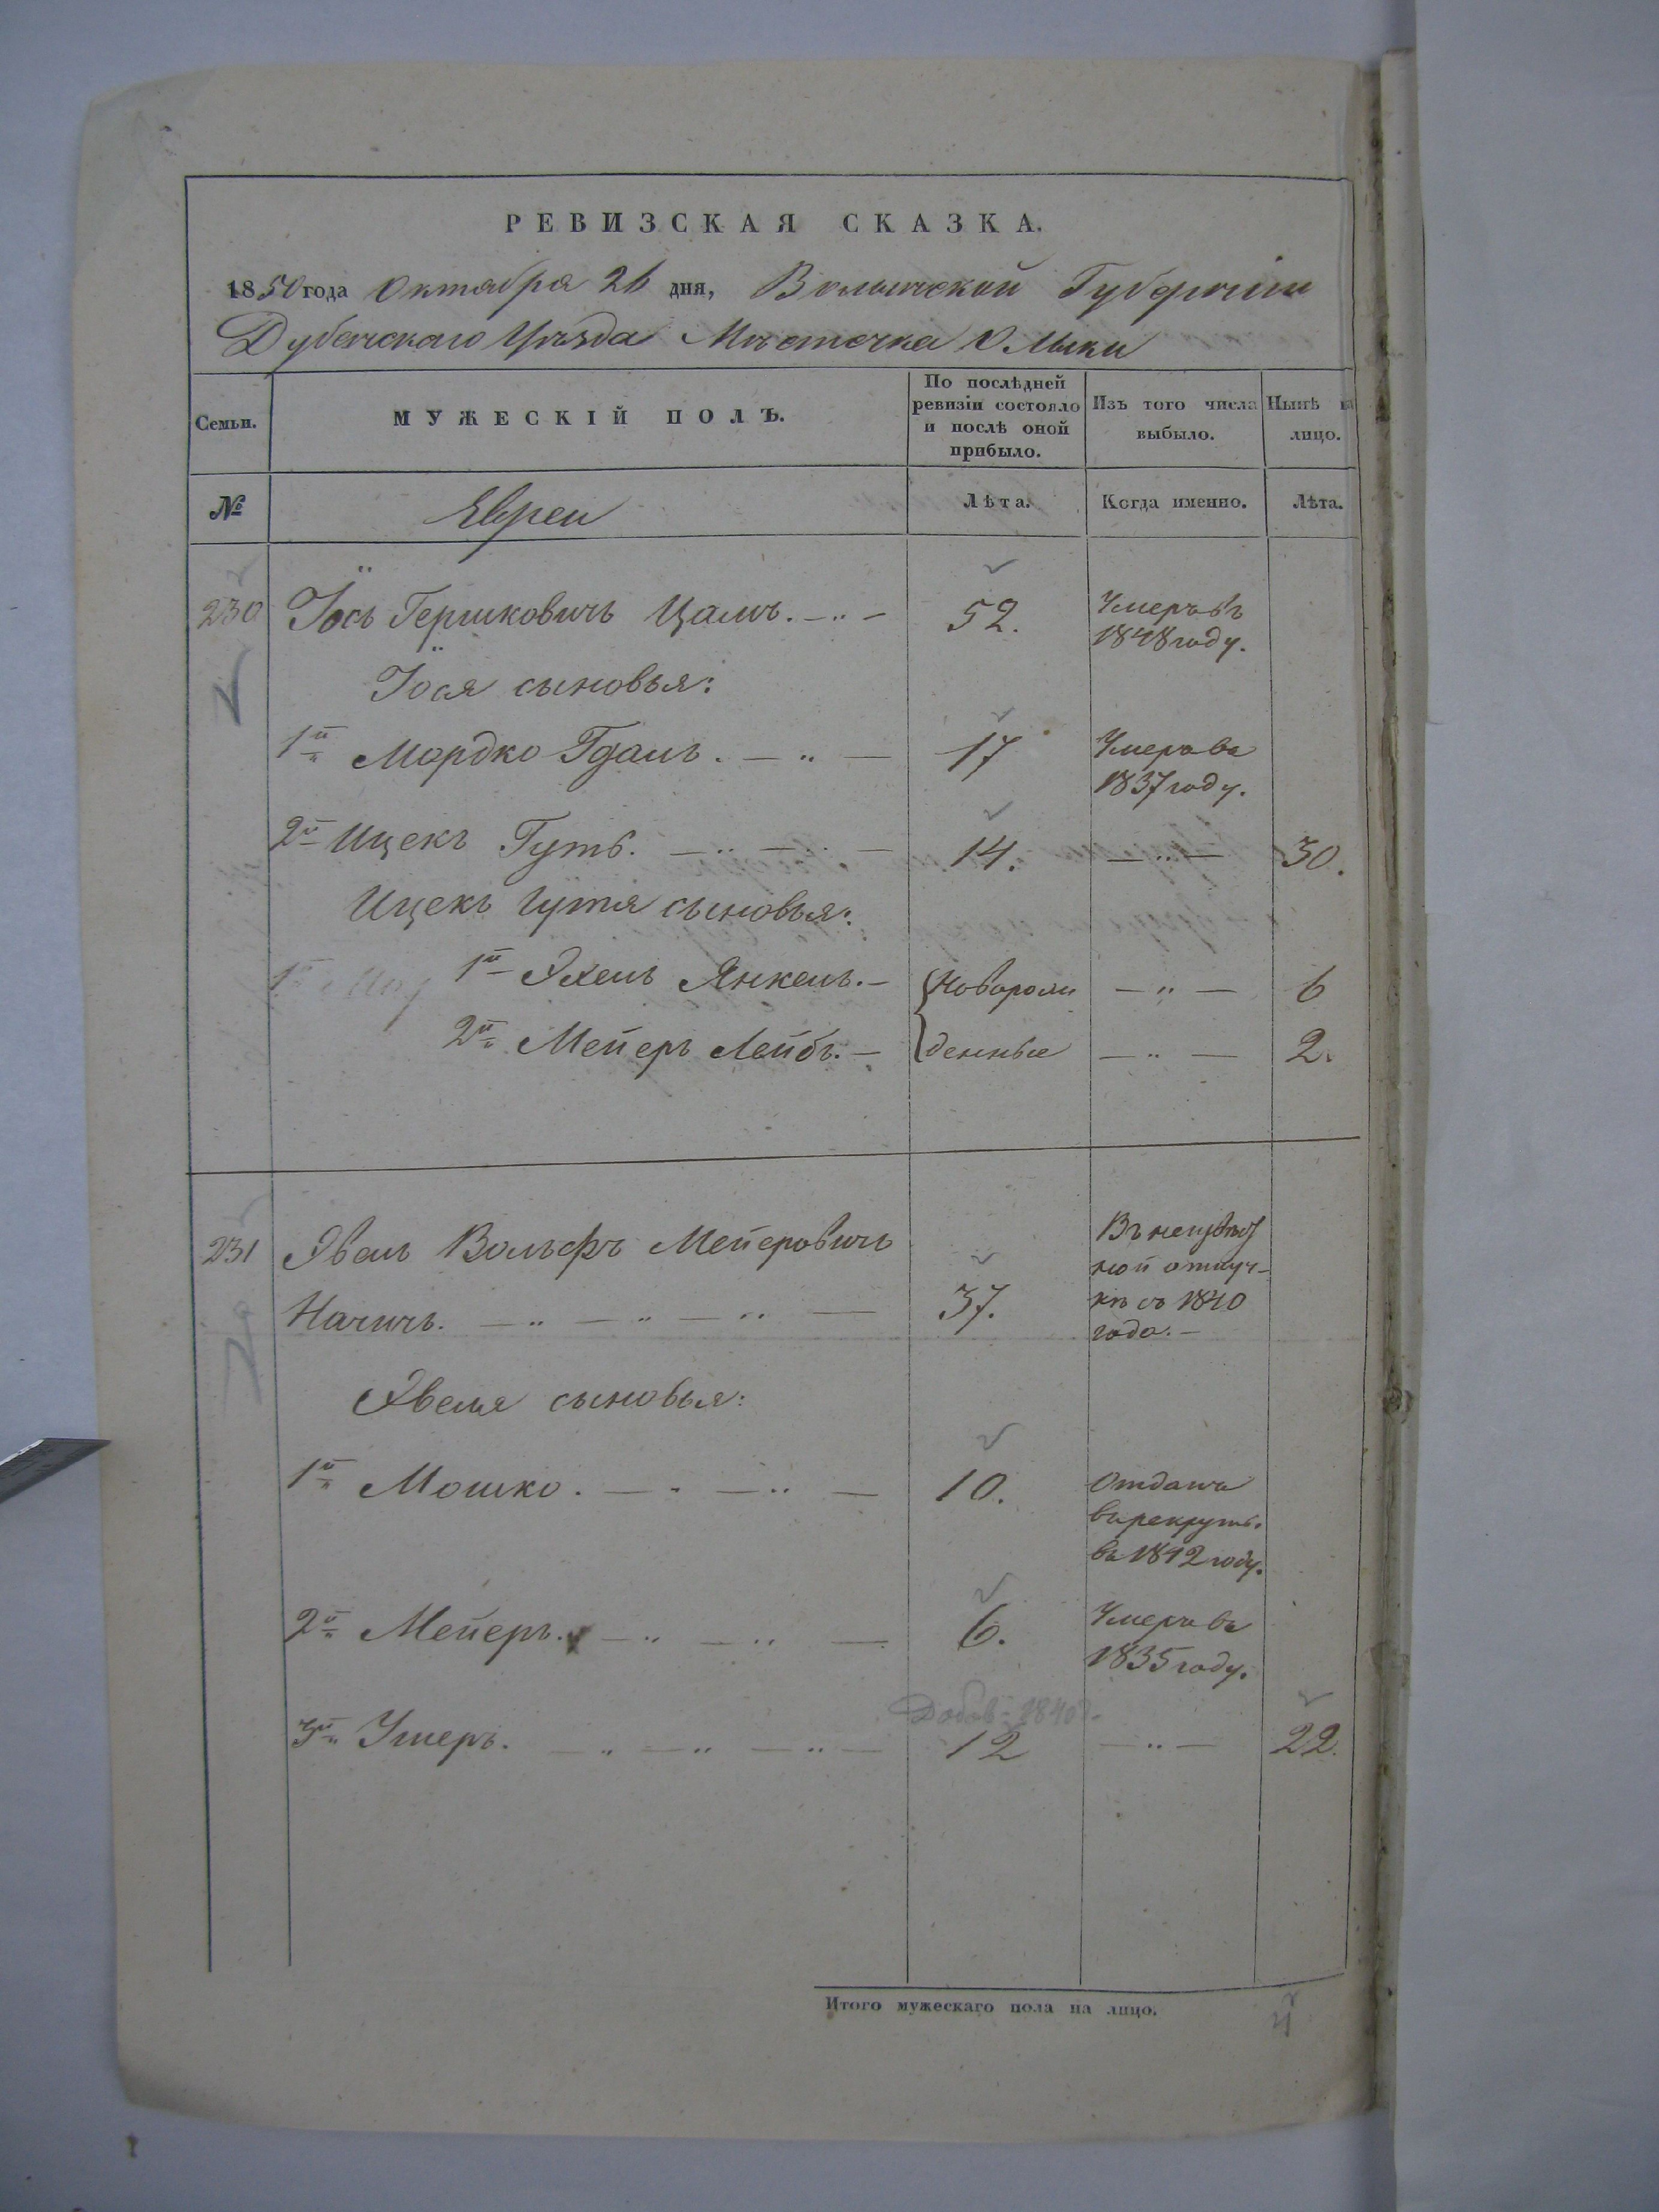 РЕВИЗСКАЯ СКАЗКА.
1850 года Октября 26 дня, Волынской Губерніи
Дубенскаго Уѣзда Мѣстечка Олыки
Семьи.
МУЖЕСКІЙ ПОЛЪ.
По послѣдней ревизіи состояло и послѣ оной прибыло.
Изъ того числа выбыло.
Нынѣ на лицо.
№
Евреи
Лѣта.
Когда именно.
Лѣта.
230 Іось Гершковичъ Цамъ. 52. Умеръ въ
1848 году.
Іося сыновья:
1й Мордко 17 Умеръ въ
1837 году.
2й Ицекъ Гутъ. 14. 30.
Ицекъ Гутя сыновья:
1й Эхель Янкель. Новорож 6
2й Мейеръ Лейбъ. денные 2.
231 Эвель Вольфъ Мейеровичъ Въ неизвѣст
ной отлуч-
Начичъ. 37. кѣ съ 1840
года.
Эвеля сыновья:
1й Мошко. 10. Отданъ
въ рекруты.
въ 1842 году.
2й Мейеръ. 6. Умеръ въ
1835 году.
Добав. 1840
3й Умеръ. 12 22.
Итого мужескаго пола на лицо. 4